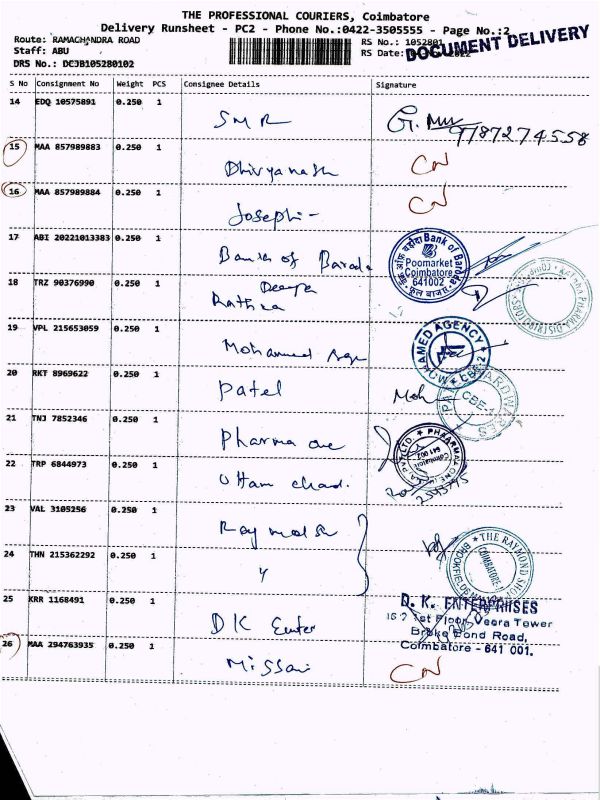 THE PROFESSIONAL COURIERS, Coimbatore
Delivery Runsheet - PC2 - Phone No.:0422-3505555 - Page No.:2
Route: RAMACHANDRA ROAD
RS No.: 1052801
Staff: ABU
RS Date:
DOCUMENT DELIVERY
DRS No.: DCJB105280102
S No Consignment No Weight PCS Consignee Details Signature
14 EDQ 10575891 0.250 1 SMR G.
9787274558
15 MAA 857989883 0.250 1 Dhivyanash CN
16 MAA 857989884 0.250 1 Joseph - CN
17 ABI 20221013383 0.250 1 Bank of Baroda
Bank of Baroda
Poomarket
Coimbatore
641002
18 TRZ 90376990 0.250 1 Deepa
Rathna
PHARMA DISTRIBUTORS
19 VPL 215653059 0.250 1 Mohammed Age
AMED AGENCY
CBE-2
20 RKT 8969622 0.250 1 Patel Moh
HARDWARES
CBE-1
21 TNJ 7852346 0.250 1 Pharma one
PHARMA ONE
Coimbatore
641 002
22 TRP 6844973 0.250 1 Uttam chad.
23 VAL 3105256 0.250 1 Raymond
24 THN 215362292 0.250 1 "
THE RAYMOND SHOP
BROOKFIELDS
COIMBATORE-1
25 KRR 1168491 0.250 1 DK Enter
D. K. ENTERPRISES
1st Floor, Veera Tower
Brooke Bond Road,
Coimbatore - 641 001.
26 MAA 294763935 0.250 1 Missan CN